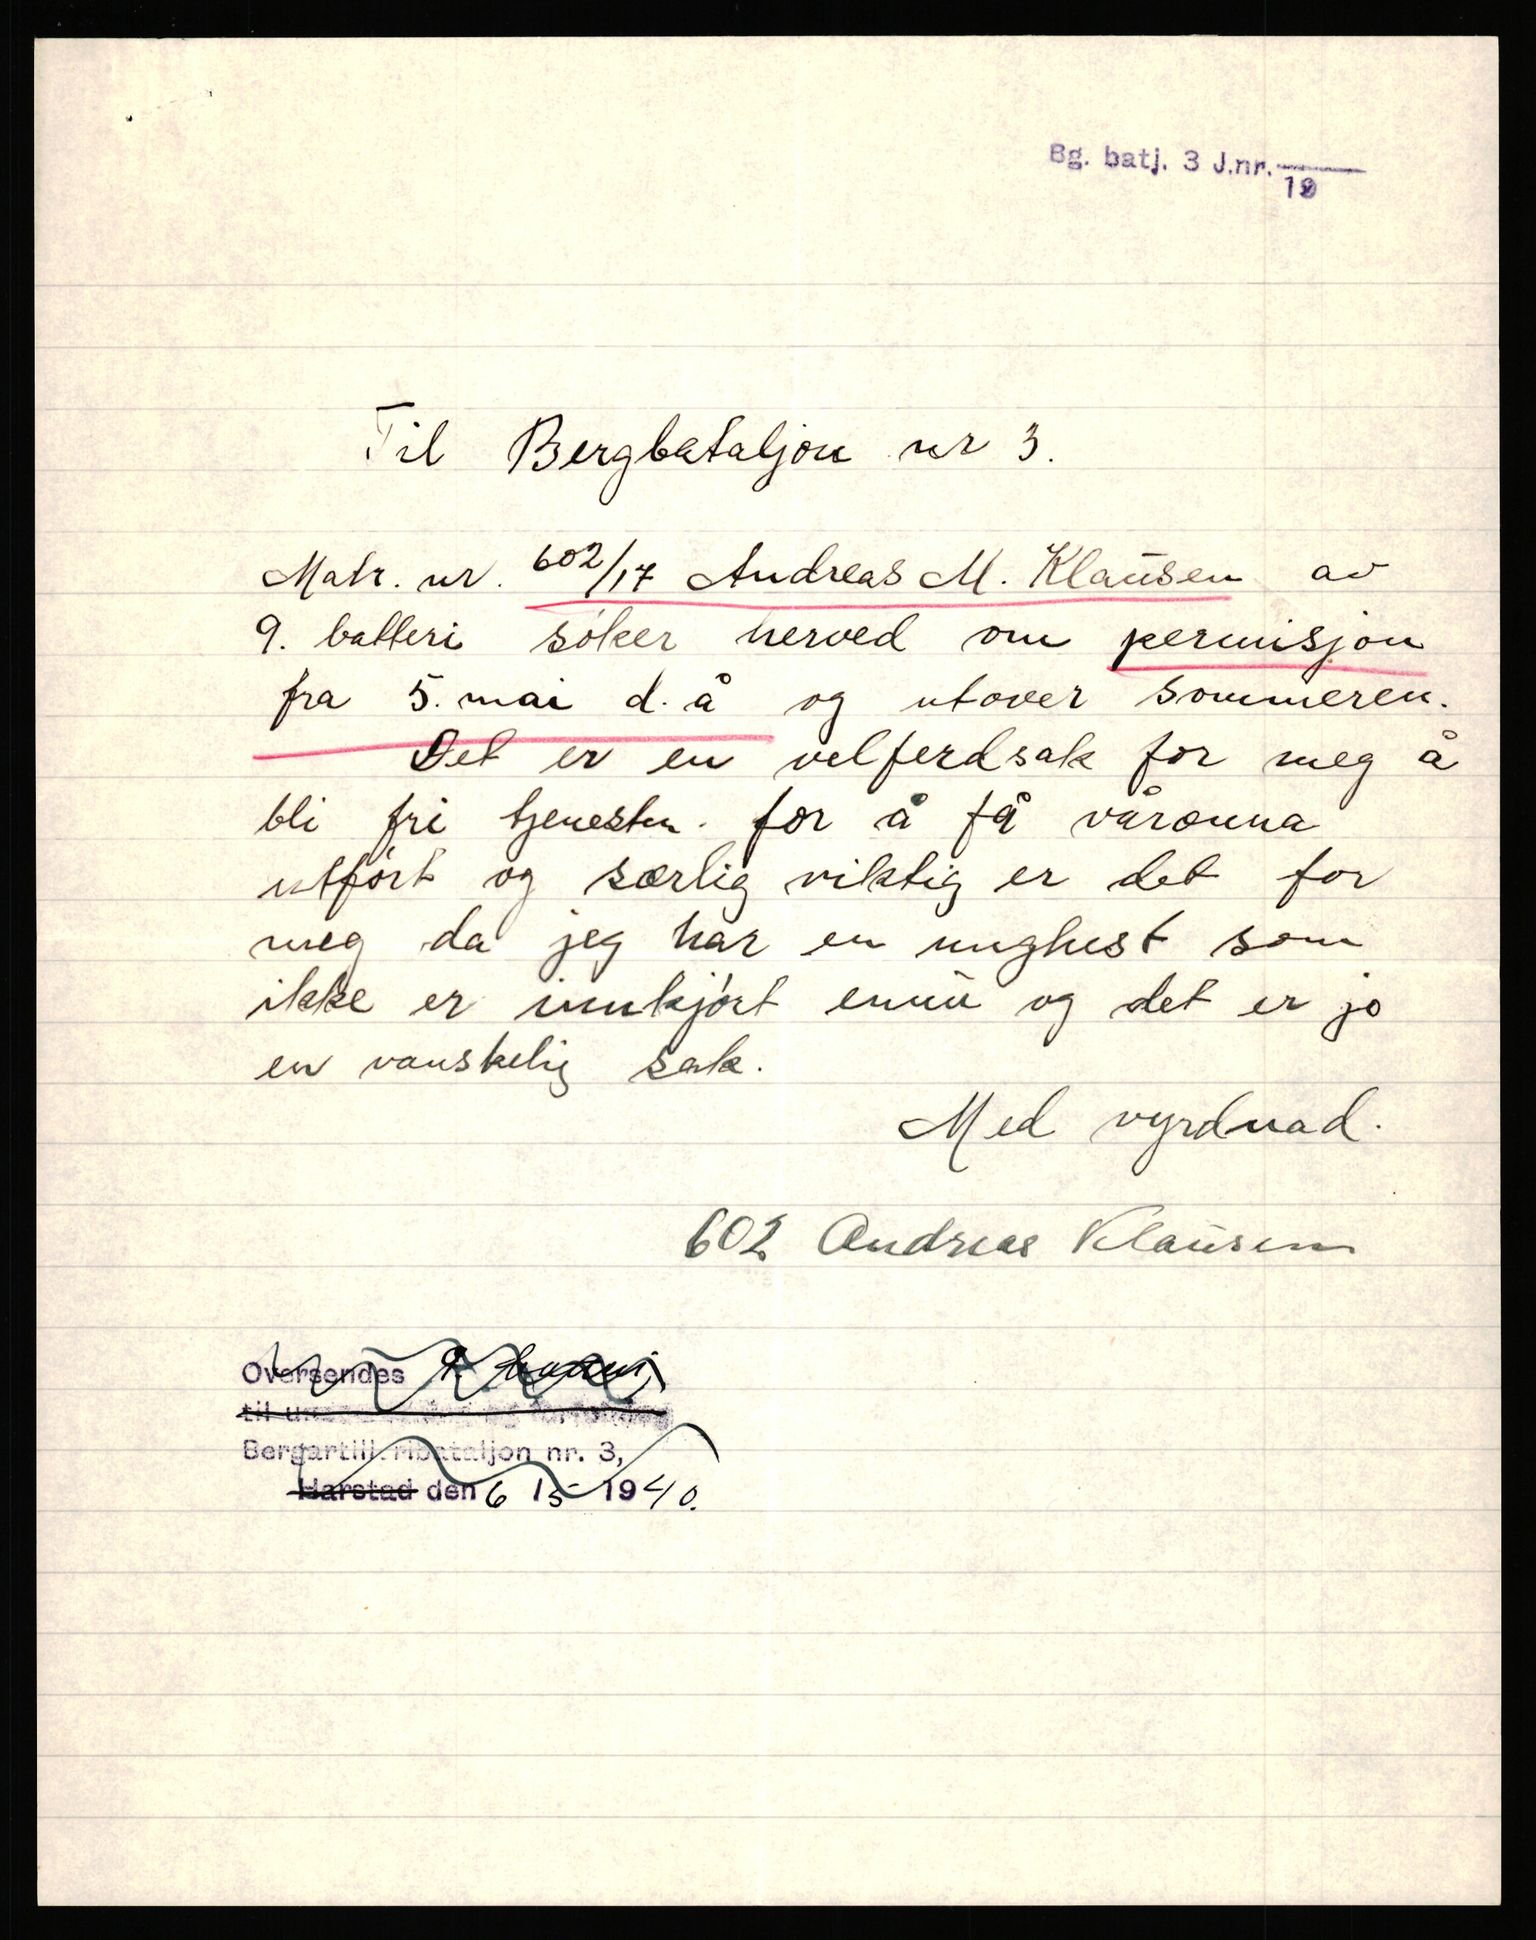 Bg. batj. 3 J.nr.
19
Til Bergbataljon nr 3.
Matr. nr. 602/17 Andreas M. Klaūsen av
9. batteri söker herved om permisjon
fra 5. mai d. å og utover sommeren.
Det er en velferdsak for meg å
bli fri tjenesten. for å få våronna
utført og særlig viktig er det for
meg da jeg har en unghest som
ikke er innkjørt ennū og det er jo
en vanskelig sak.
Med vyrdnad.
602 Andreas Klaūsen
Oversendes 9. batteri
til
Bergartilleribataljon nr. 3,
Harstad den 6/5 1940.